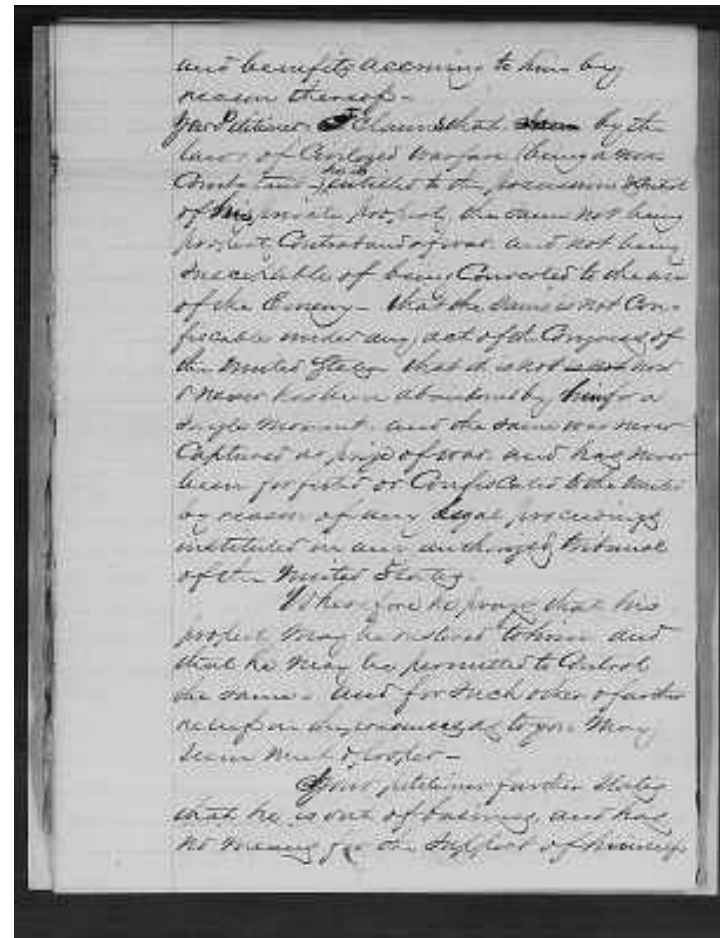 and benefits accruing to him by
reason thereof-
Your Petitioner claims that by the
laws of Civilized Warfare (being a non
Combatant) he is entitled to the possession & use
of his private property, the same not being
property Contraband of war and not being
susceptible of being Converted to the use
of the Enemy- that the same is not Con-
fiscable under any act of the Congress of
the United States that it is not now
& never has been abandoned by him for a
single moment and the same was never
Captured as prize of war and has never
been forfeited or Confiscated to the United
by reason of any legal proceedings
instituted in any authorized tribunal
of the United States.
Wherefore he prays that his
property may be restored to him and
that he may be permitted to Control
the same. and for such other & further
relief in the premises as to you may
seem meet & proper-
Your petitioner further states
that he is out of business and has
no means for the support of himself